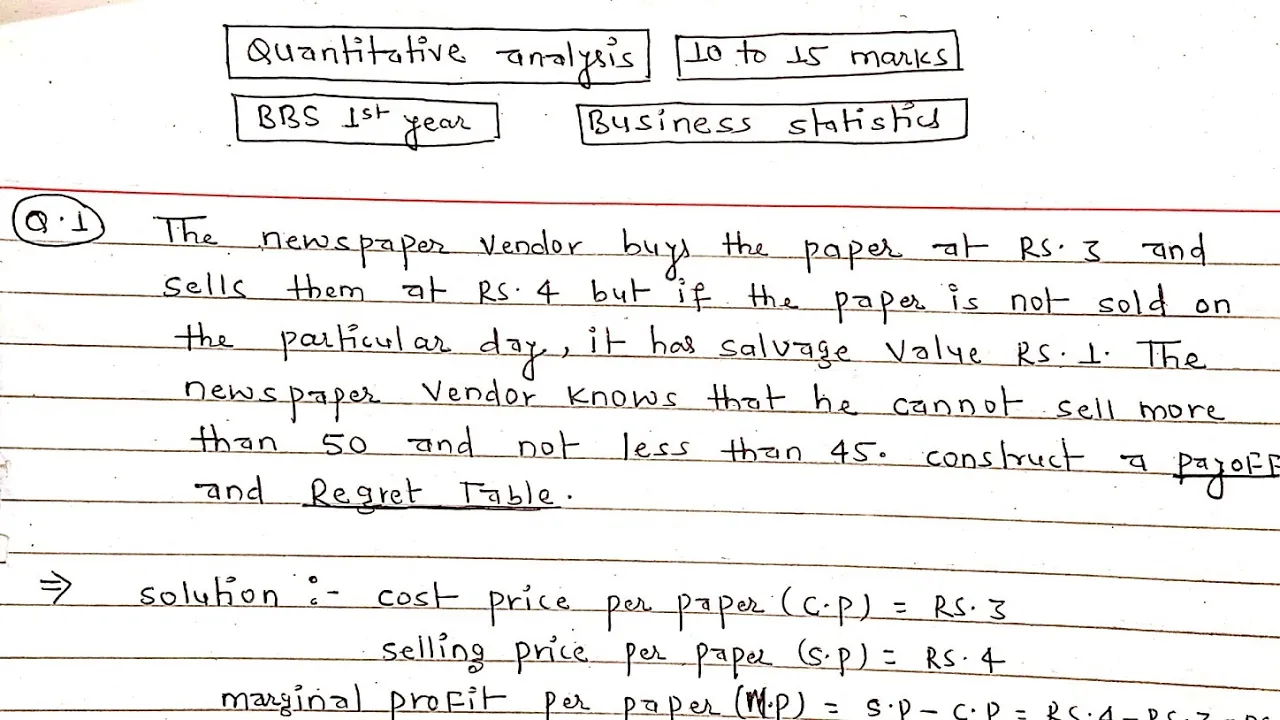 Quantitative analysis 10 to 15 marks
BBS 1st year Business statistics
Q.1 The newspaper vendor buys the paper at RS. 3 and
sells them at RS. 4 but if the paper is not sold on
the particular day, it has salvage value RS. 1. The
newspaper vendor knows that he cannot sell more
than 50 and not less than 45. construct a payoff
and Regret Table.
⇒ solution :- cost price per paper (C.P) = RS. 3
selling price per paper (S.P) = RS. 4
marginal profit per paper (M.P) = S.P - C.P = RS.4 - RS.3